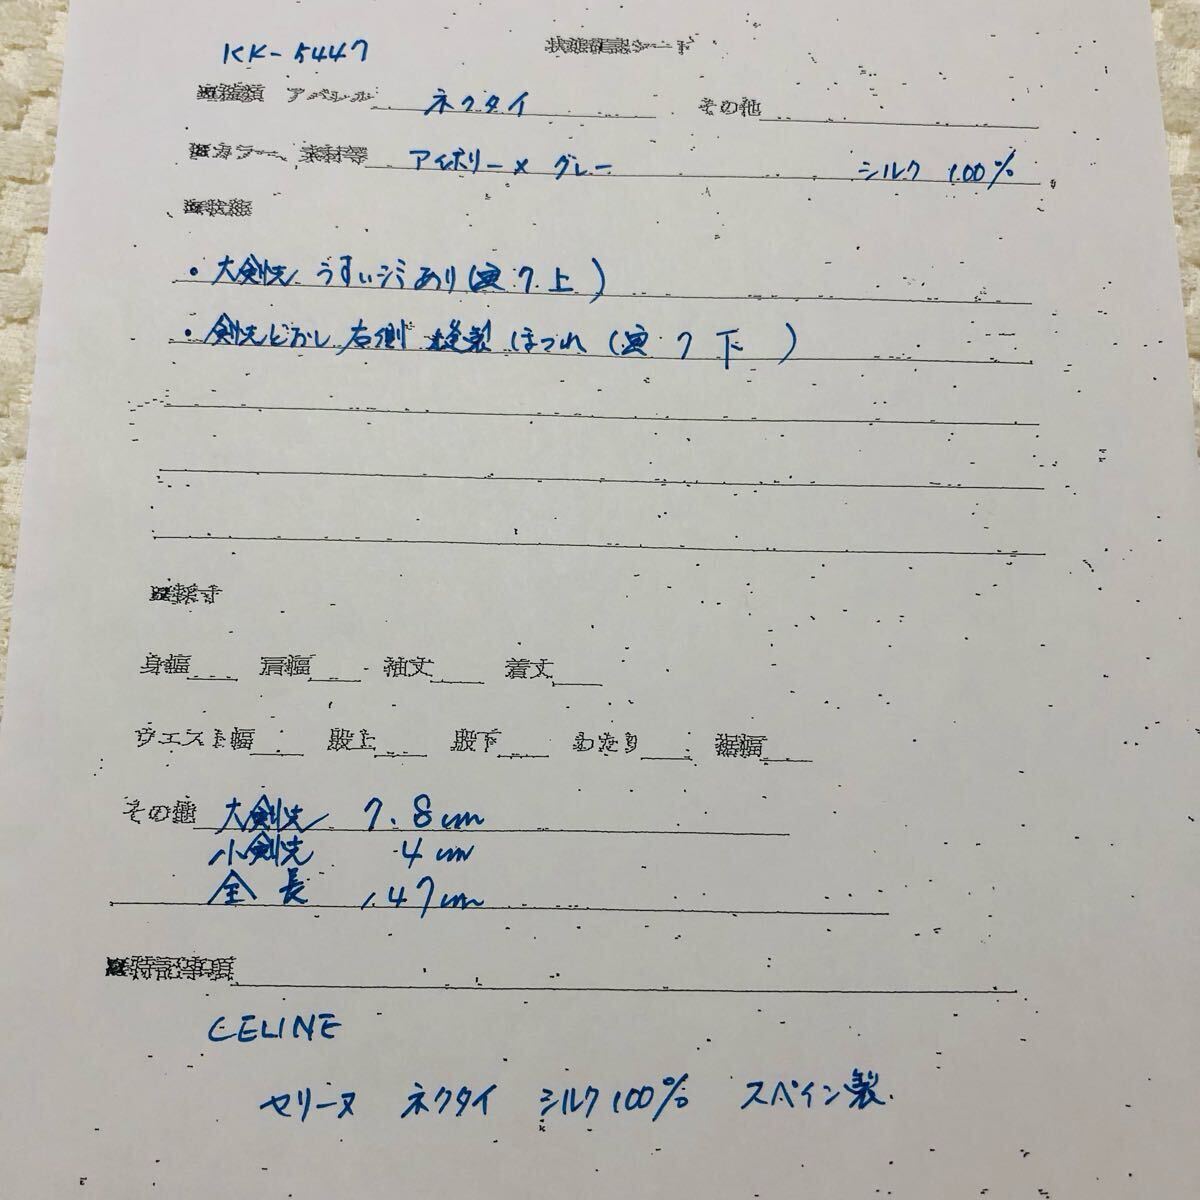 KK-5447 状態確認シート
種類 アパレル ネクタイ その他
カラー、素材等 アイボリー×グレー シルク 100%
状態
・大剣先 うすいシミあり( 7 上 )
・剣先どおし 右側 縫製 ほつれ ( 7 下 )
採寸
身幅 肩幅 袖丈 着丈
ウエスト幅 股上 股下 わたり 裾幅
その他 大剣先 7.8cm
小剣先 4cm
全長 147cm
特記事項
CELINE
セリーヌ ネクタイ シルク100% スペイン製.